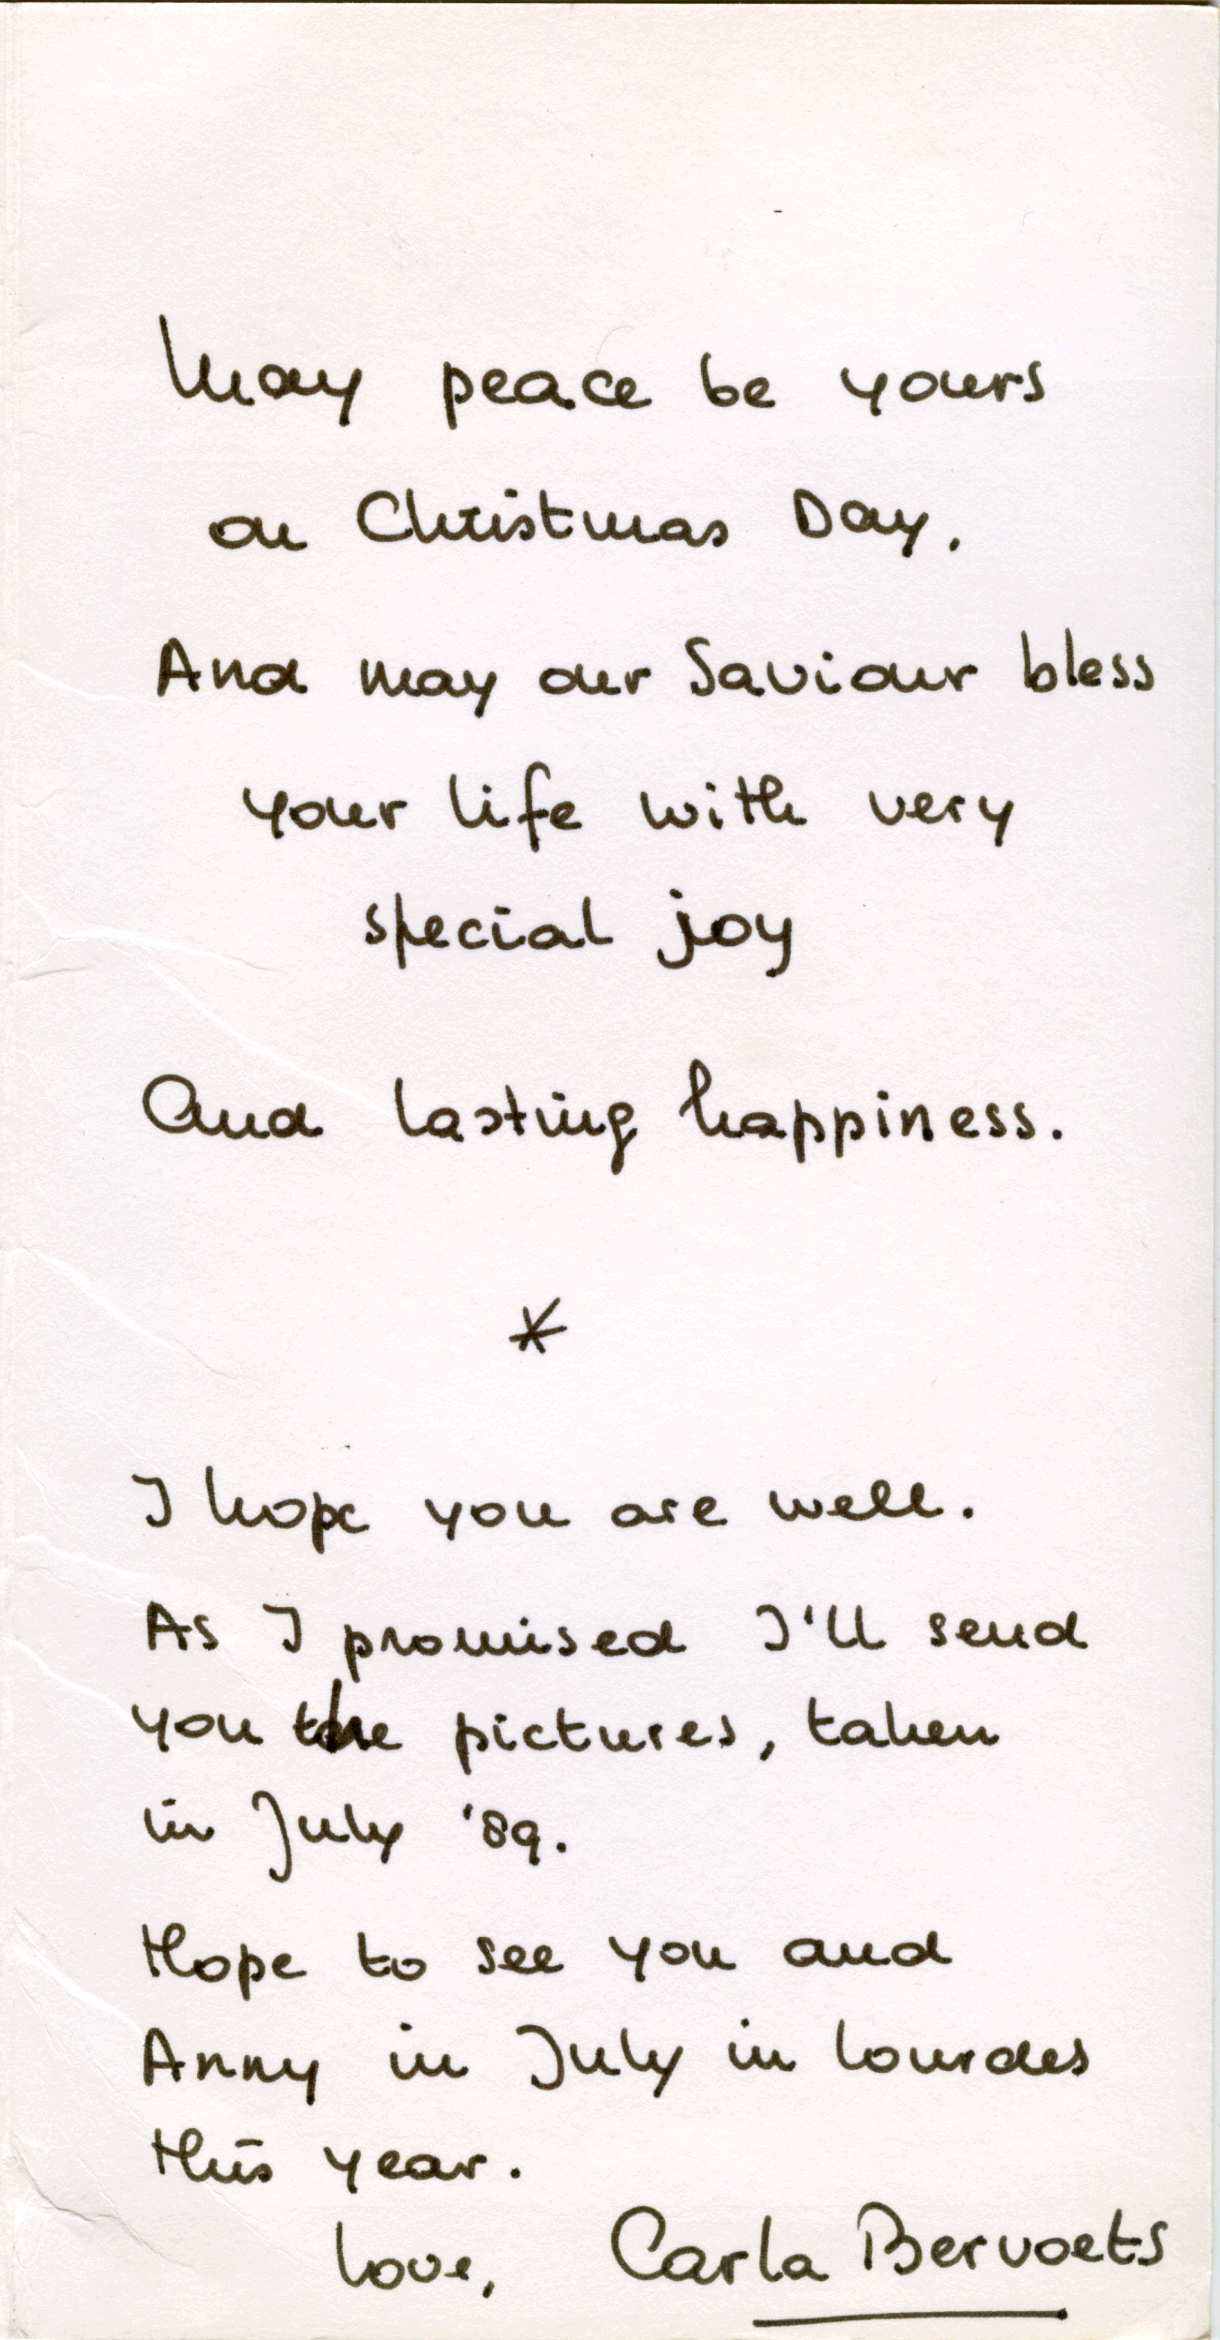 May peace be yours
on Christmas Day.
And may our Saviour bless
your life with very
special joy
And lasting happiness.
*
I hope you are well.
As I promised I'll send
you the pictures, taken
in July '89.
Hope to see you and
Anny in July in Lourdes
this year.
Love, Carla Bervoets